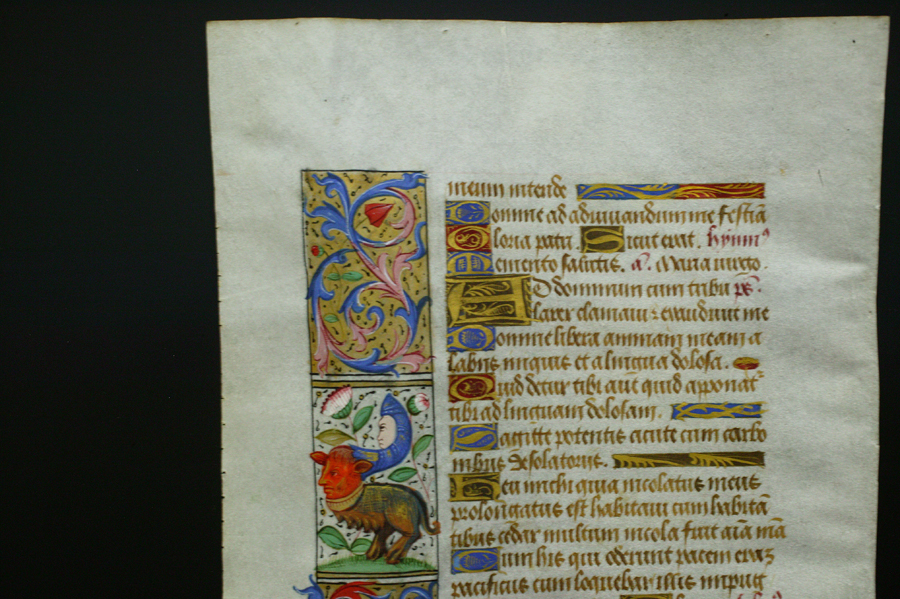 meum intende
Domine ad adiuuandum me festiā
Gloria patri. Sicut erat. hymnꝰ
Memento salutis. a͛. Maria virgo.
AD dominum cum tribu ps͛.
larer clamaui ⁊ exaudiuit me
Domine libera animam meam a
labiis iniquis et a lingua dolosa.
Quid detur tibi aut quid apponat᷑
tibi ad linguam dolosam.
Sagitte potentis acute cum carbo
nibus desolatoriis.
Heu michi quia incolatus meus
prolongatus est habitaui cum habitā
tibus cedar multum incola fuit aīa mā
Cum his qui oderunt pacem eraz
pacificus cum loquebar illis impug